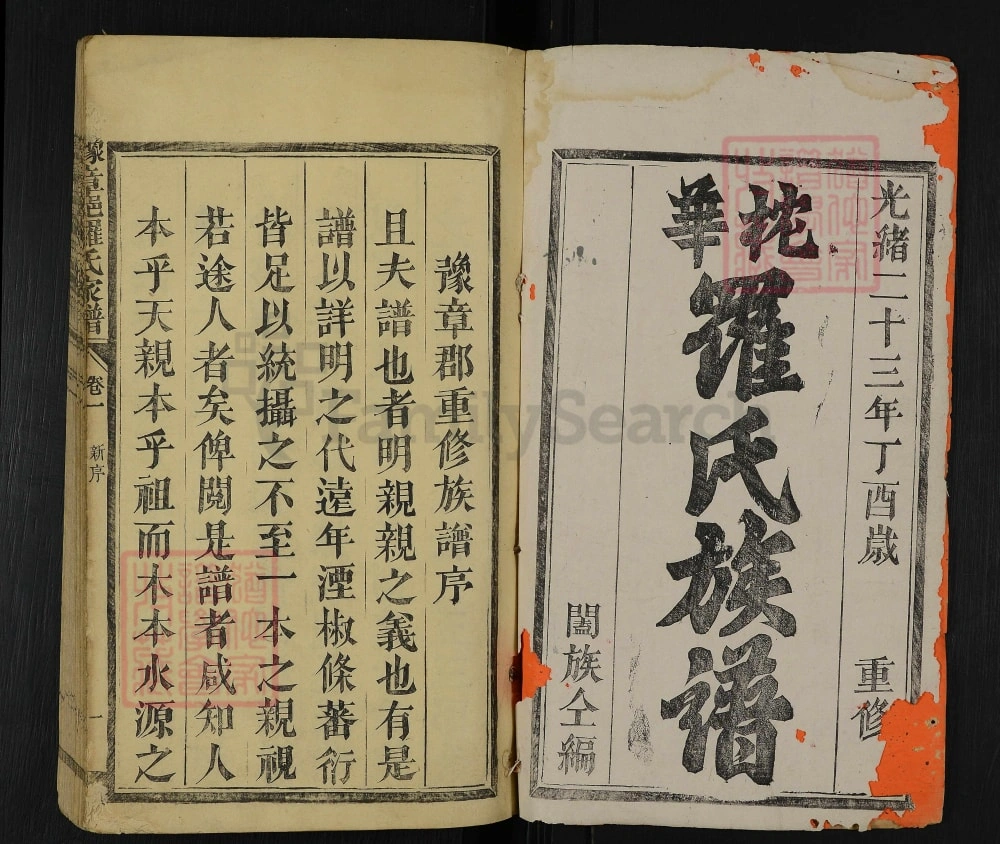 光緒二十三年丁酉歲 重修
華 羅氏族譜
闔族仝編
豫章郡重修族譜序
且夫譜也者明親親之義也有是
譜以詳明之代遠年湮椒條蕃衍
皆足以統攝之不至一本之親視
若途人者矣俾閱是譜者咸知人
本乎天親本乎祖而木本水源之
豫章羅氏家譜
卷一
新序
一
FamilySearch